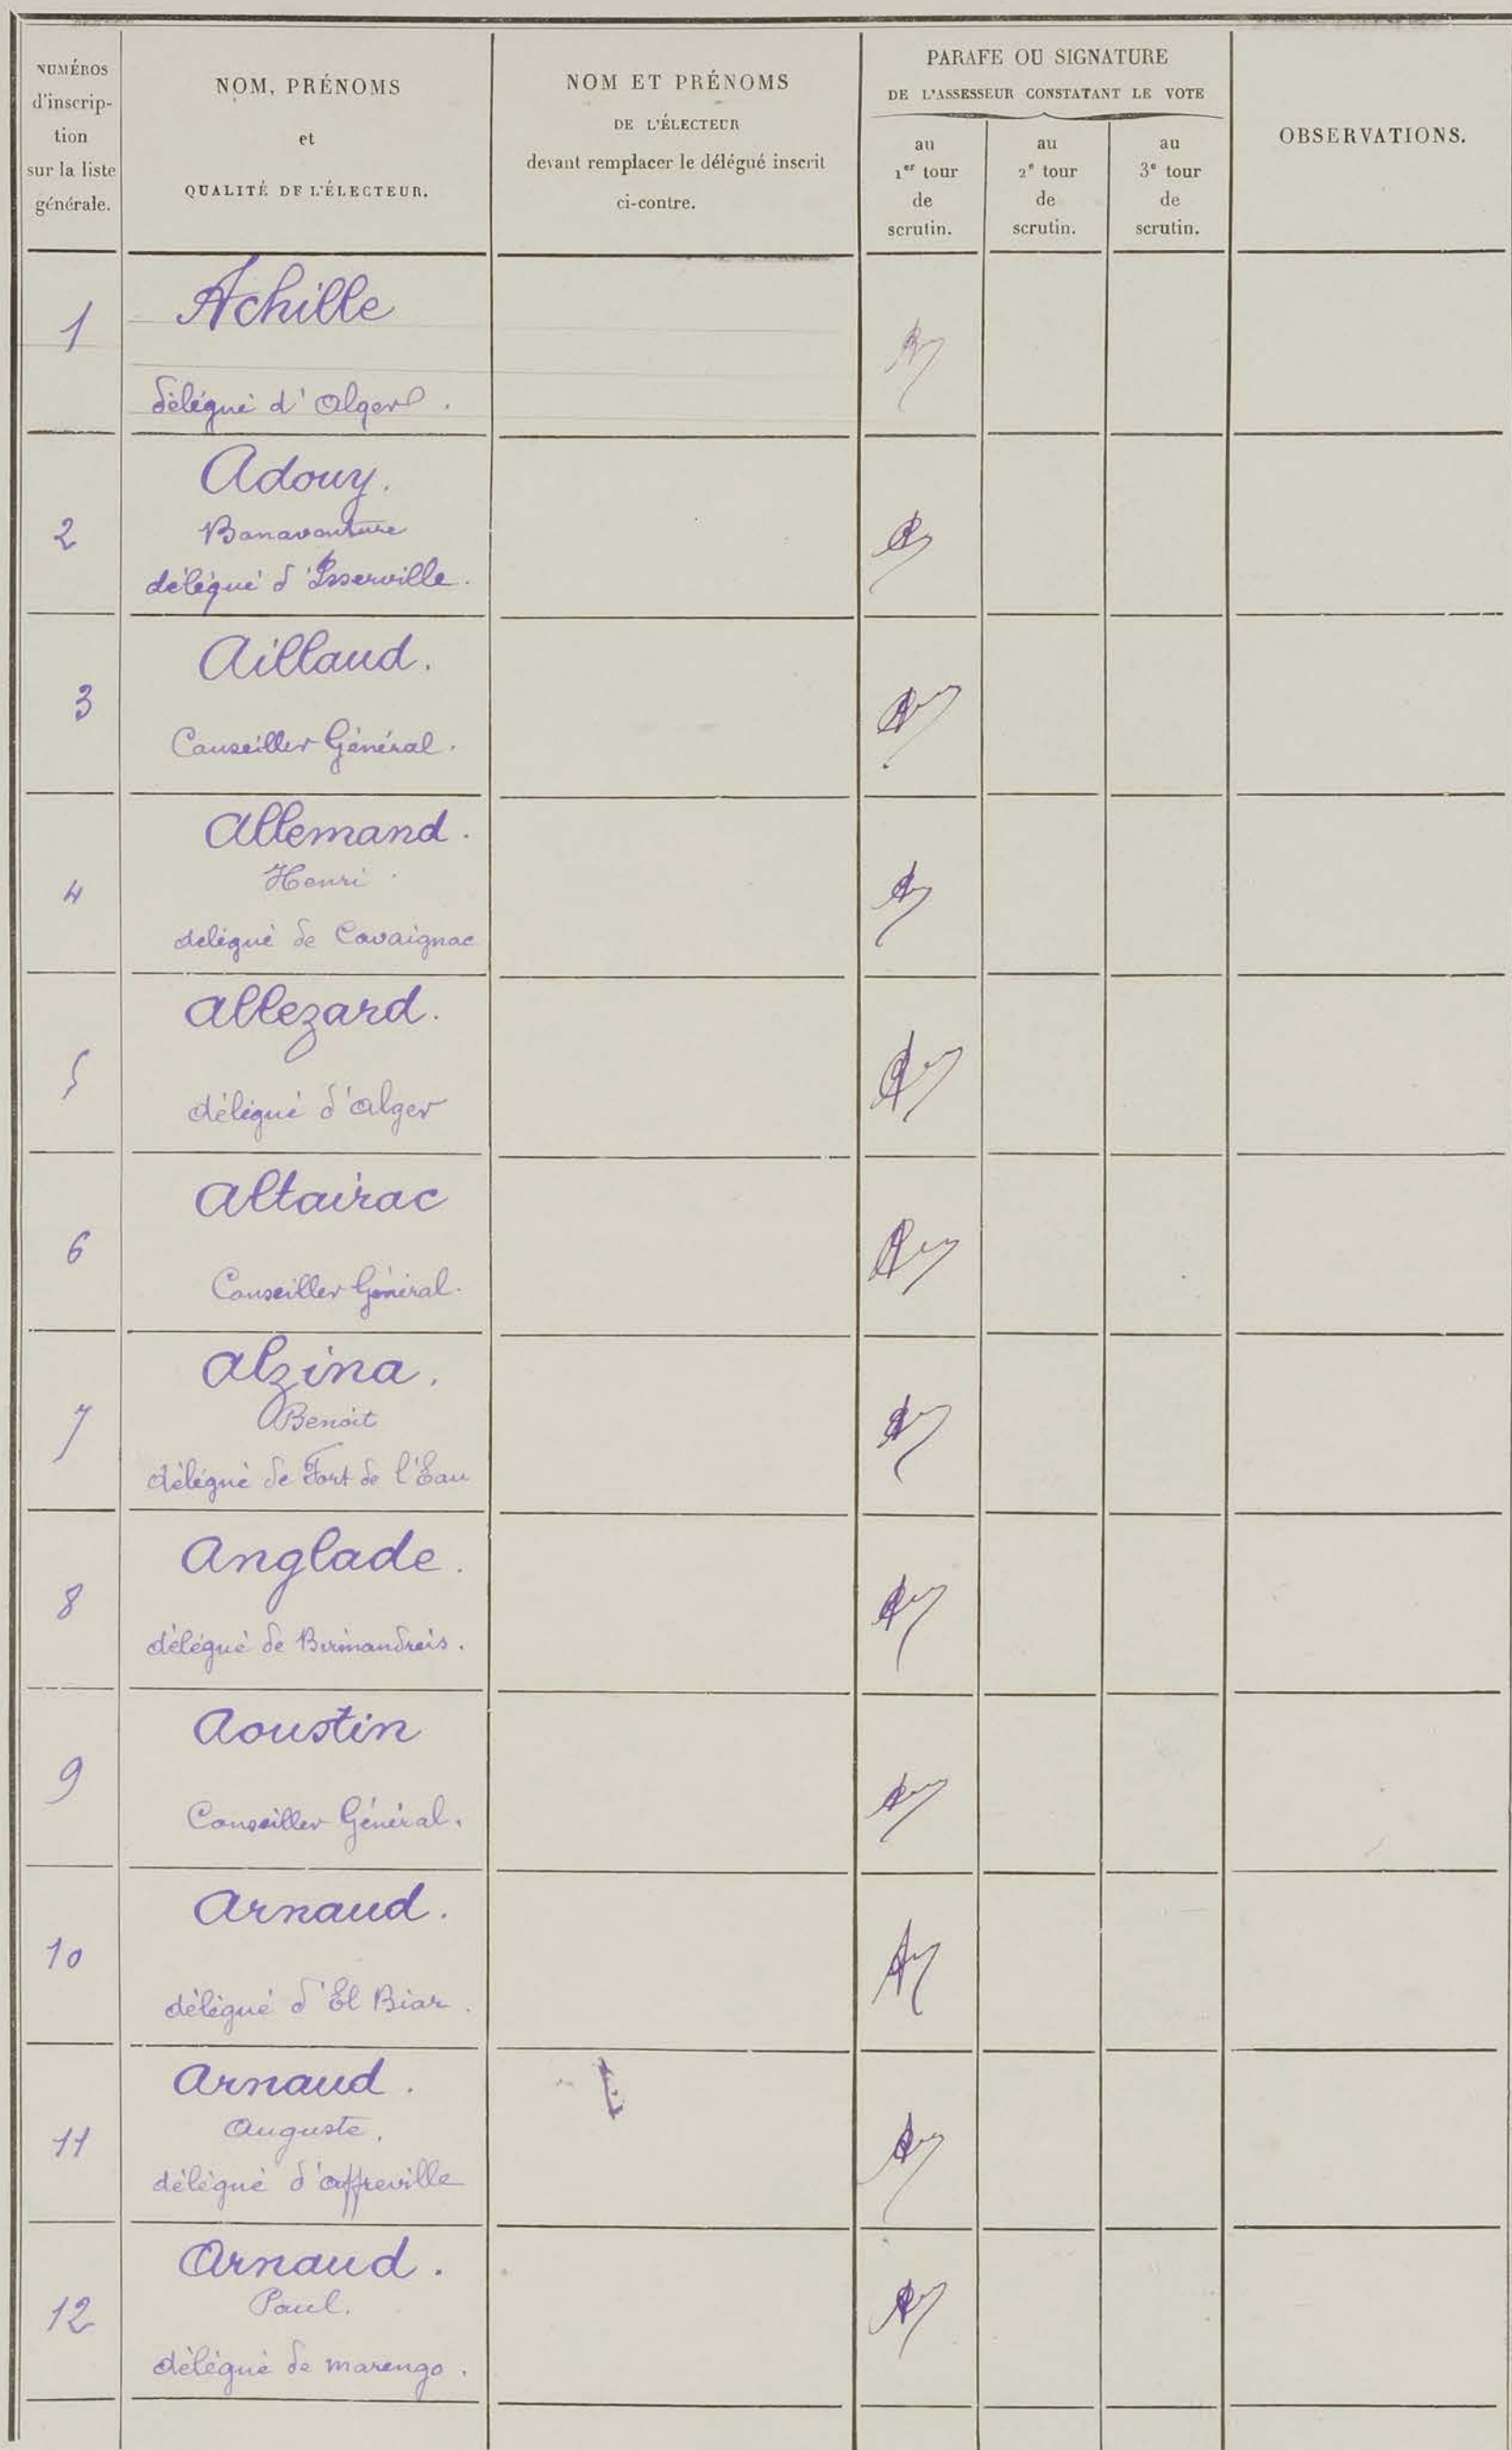 NUMÉROS
d'inscrip-
tion
sur la liste
générale.
NOM, PRÉNOMS
et
QUALITÉ DE L'ÉLECTEUR.
NOM ET PRÉNOMS
DE L'ÉLECTEUR
devant remplacer le délégué inscrit
ci-contre.
PARAFE OU SIGNATURE
DE L'ASSESSEUR CONSTATANT LE VOTE
au
1er tour
de
scrutin.
au
2e tour
de
scrutin.
au
3e tour
de
scrutin.
OBSERVATIONS.
1
Achille
délégué d'Alger.
2
Adouy.
Bonaventure
délégué d'Isserville.
3
Aillaud.
Conseiller Général.
4
Allemand.
Henri
délégué de Cavaignac
5
Allezard.
délégué d'Alger
6
Altairac
Conseiller Général.
7
Alzina.
Benoit
délégué de Fort de l'Eau
8
Anglade.
délégué de Birmandreis.
9
Aoustin
Conseiller Général.
10
Arnaud.
délégué d'El Biar.
11
Arnaud.
Auguste.
délégué d'Affreville
12
Arnaud.
Paul.
délégué de Marengo.